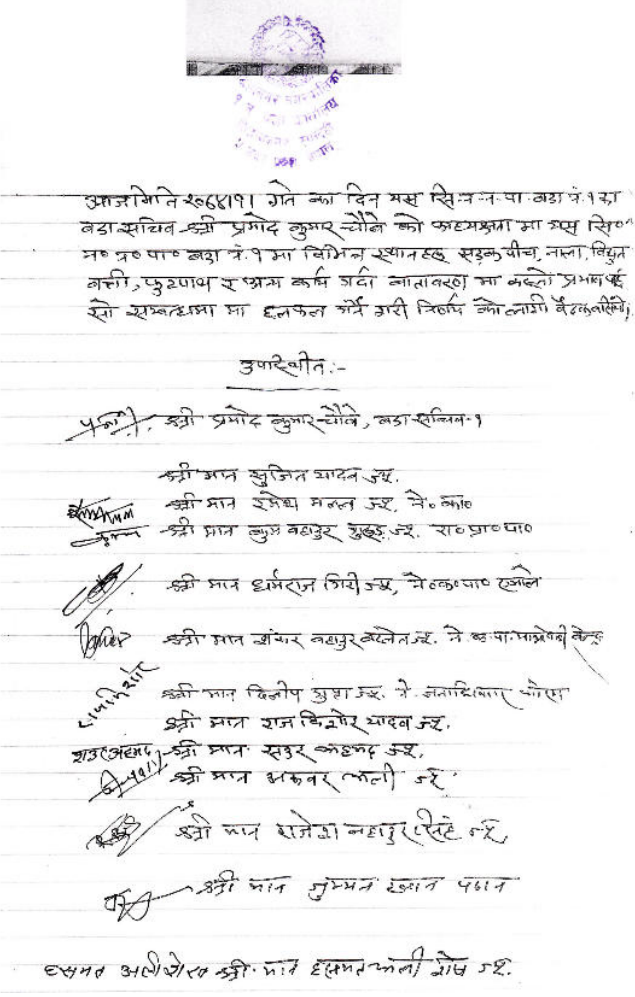 आज मिति २०६४।१।१ गते का दिन यस सि.न.न.पा. वडा नं. १ का
वडा सचिव श्री प्रमोद कुमार चौबे को अध्यक्षता मा यस सि०
न० न० पा० वडा नं. १ मा विभिन्न स्थानहरु सडक पीच, नाला, विद्युत
बत्ती, फुटपाथ र अन्य कार्य गर्दा वातावरण मा कस्तो प्रभाव पर्छ
सो सम्बन्धमा मा छलफल गर्ने गरी निर्णय को लागी बैठक बसियो।
उपस्थिती :-
श्री प्रमोद कुमार चौबे, वडा सचिव-१
श्री मान सुजित यादव ज्यू.
श्री मान रमेश मल्ल ज्यू. ने० का०
श्री मान कुम बहादुर गुरुङ ज्यू. रा० प्र० पा०
श्री मान धर्मराज गिरी ज्यू, ने०क०पा० एमाले
श्री मान शंकर बहादुर बस्नेत ज्यू. ने. क. पा. माओवादी केन्द्र
श्री मान दिलीप गुप्ता ज्यू. ने. जनाधिकार फोरम
राजकिशोर श्री मान राज किशोर यादव ज्यू.
अहमद श्री मान अहमद ज्यू.
श्री मान अकवर अली ज्यू.
श्री मान राजेश बहादुर सिंह ज्यू
श्री मान जुम्मन खान पठान
हसमत अली शेख श्री मान हसमत अली शेष ज्यू.